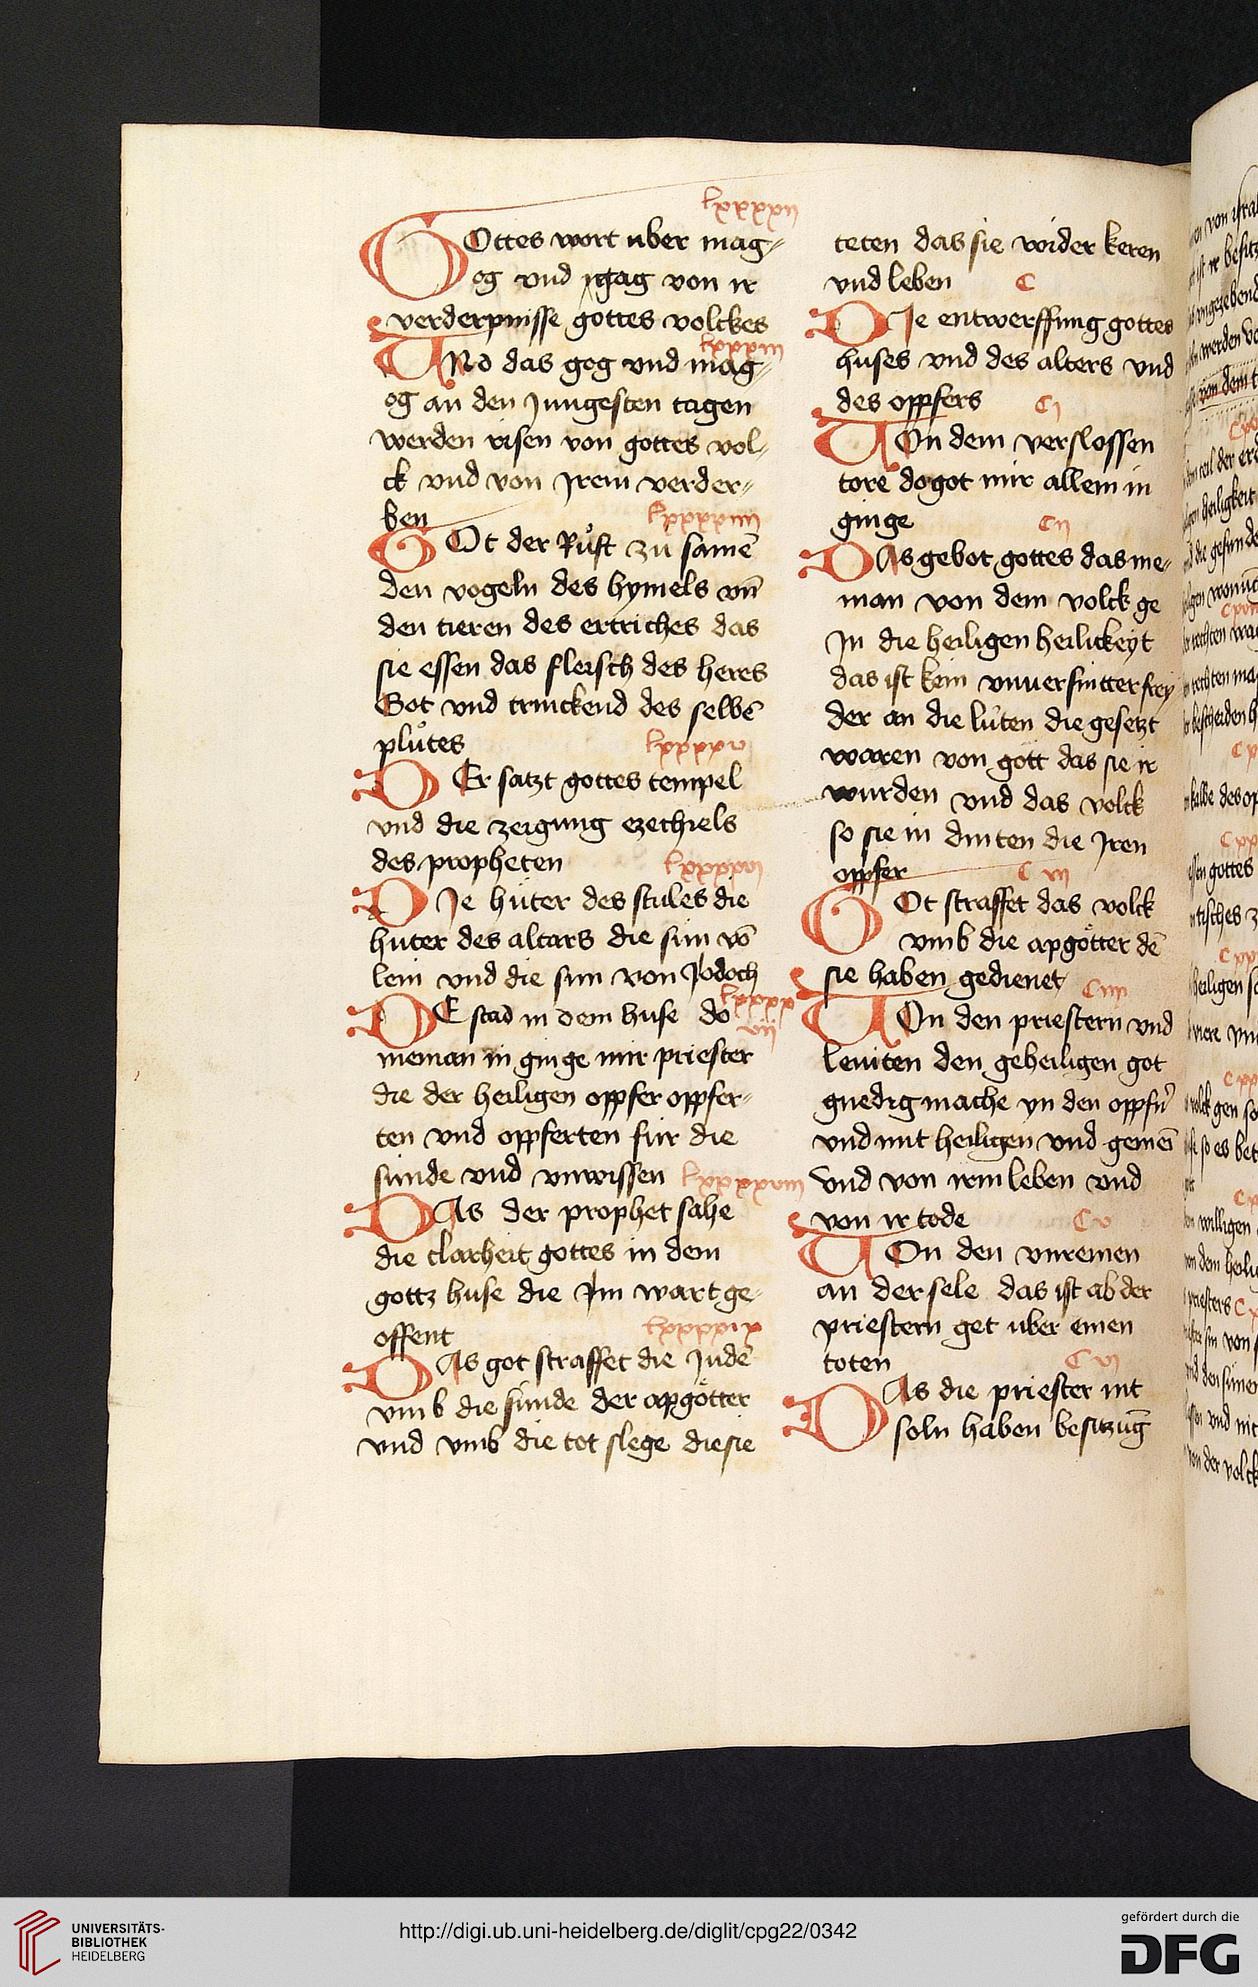 lxxxxii
GOttes wort uber mag-
og vnd gag von ir
verderpnisse gottes volckes
lxxxxiii
VNd das gog vnd mag-
og an den Jungesten tagen
werden risen von gottes vol-
ck vnd von Jrem verder-
ben
lxxxxiiii
GOt der Růft zu samē
den vogeln des hymels vñ
den tieren des ertriches das
sie essen das fleisch des heres
Got vnd trinckend des selbē
plůtes
lxxxxv
DEr satzt gottes tempel
vnd die zeigung ezechiels
des propheten
lxxxxvi
DJe hüter des stules die
hüter des altars die sün vō
levi vnd die sün von sodoch
lxxxx
DE stad in dem huse do
vii
nieman in ginge nür priester
die der heiligen oppfer oppfer-
ten vnd oppferten für die
sünde vnd vnwissen
lxxxxviii
DAs der prophet sahe
die clarheit gottes in dem
gottz huse die Jm wart ge-
offent
lxxxxix
DAs got straffet die Judē
vmb die sünde der apgötter
vnd vmb die tot slege die sie
teten das sie wider keren
vnd leben
C
DJe entwerffung gottes
huses vnd des alters vnd
des oppfers
Ci
VOn dem verslossen
tore do got nür allein in
ginge
Cii
DAs gebot gottes das nie-
man von dem volck ge
Jn die heiligen heilickeyt
das ist kein vnuersnitter frey
der an die lüten die gesetzt
waren von gott das sie ir
wurden vnd das volck
so sie in dinten die Jren
oppfer
Ciii
GOt straffet das volck
vmb die apgötter dē
sie haben gedienet
Ciiii
VOn den priestern vnd
leuiten den geheiligen got
gnedig mache yn den oppfñ
vnd mit heiligen vnd gemeī
Vnd von irm leben vnd
von ir tode
Cv
VOn den vnreinen
an der sele das ist ab der
priestern get uber einen
toten
Cvi
DAs die priester nit
soln haben besitzūg
UNIVERSITÄTS-
BIBLIOTHEK
HEIDELBERG
http://digi.ub.uni-heidelberg.de/diglit/cpg22/0342
gefördert durch die
DFG